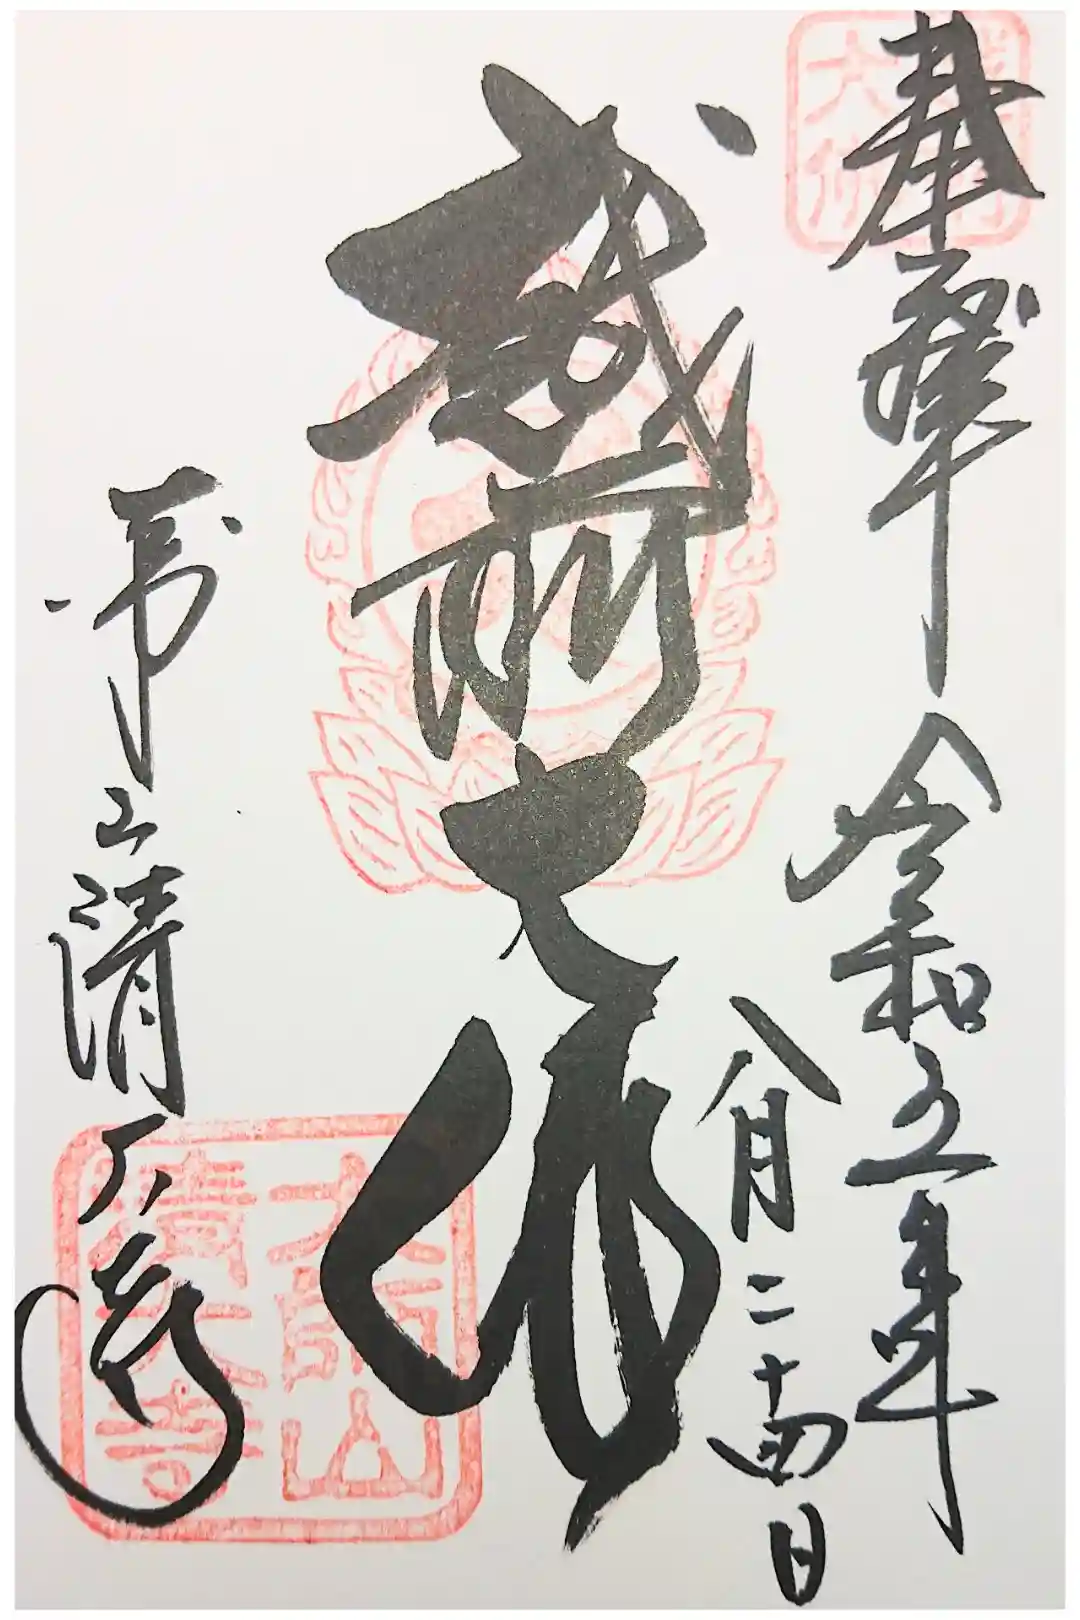 奉拝
令和五年
八月二十四日
越前大仏
大師山清大寺
大師山
清大寺